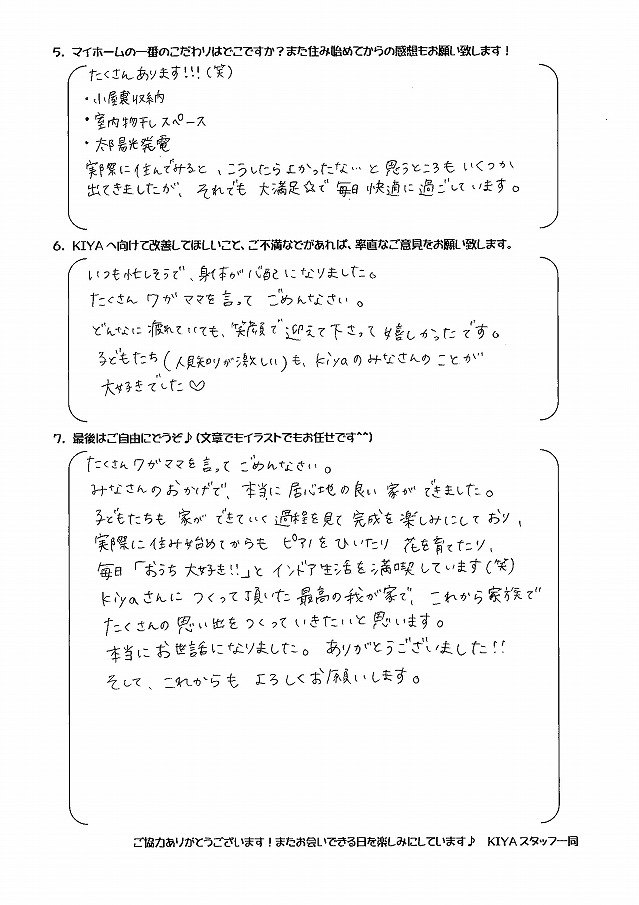 5. マイホームの一番のこだわりはどこですか?また住み始めてからの感想もお願い致します!
たくさんあります!!!(笑)
・小屋裏収納
・室内物干しスペース
・太陽光発電
実際に住んでみると、こうしたらよかったな、と思うところもいくつか
出てきましたが、それでも大満足☆で毎日快適に過ごしています。
6. KIYAへ向けて改善してほしいこと、ご不満などがあれば、率直なご意見をお願い致します。
いつも忙しそうで、身体が心配になりました。
たくさんワガママを言ってごめんなさい。
どんなに疲れていても、笑顔で迎えて下さって嬉しかったです。
子どもたち(人見知りが激しい)も、kiyaのみなさんのことが
大好きでした♡
7. 最後はご自由にどうぞ♪(文章でもイラストでもお任せです^^)
たくさんワガママを言ってごめんなさい。
みなさんのおかげで、本当に居心地の良い家ができました。
子どもたちも家ができていく過程を見て完成を楽しみにしており、
実際に住み始めてからもピアノをひいたり花を育てたり、
毎日「おうち大好き!!」とインドア生活を満喫しています(笑)
kiyaさんにつくって頂いた最高の我が家で、これから家族で
たくさんの思い出をつくっていきたいと思います。
本当にお世話になりました。ありがとうございました!!
そして、これからもよろしくお願いします。
ご協力ありがとうございます!またお会いできる日を楽しみにしています♪ KIYAスタッフ一同